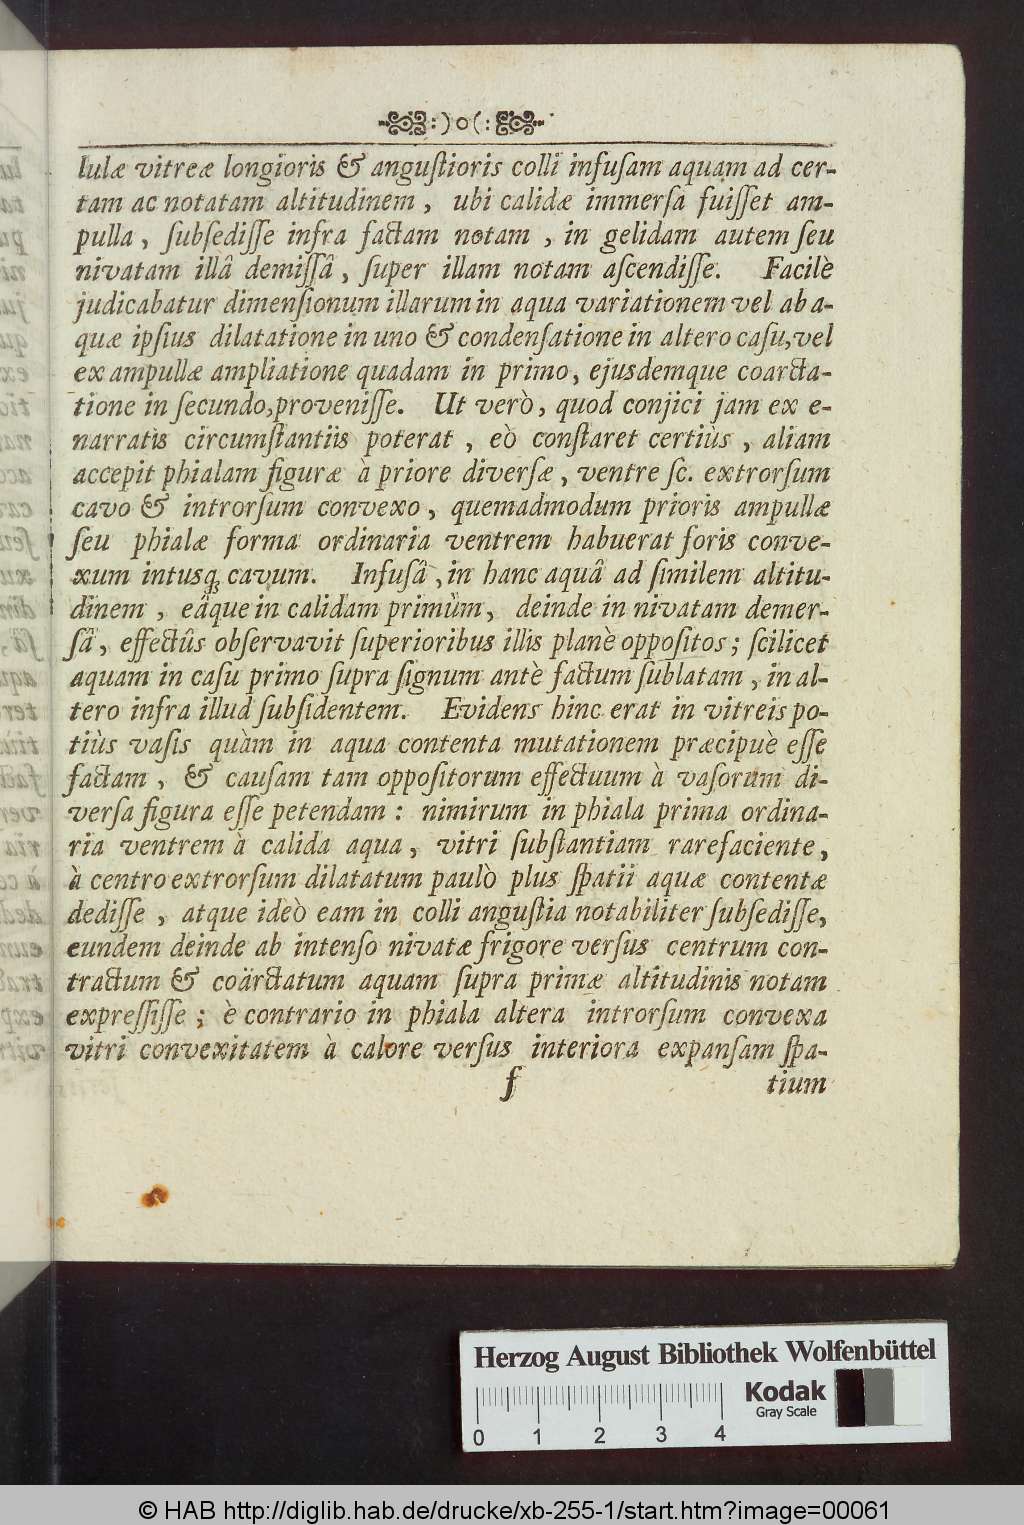 :)o(:
lulæ vitreæ longioris & anguſtioris colli infuſam aquam ad cer-
tam ac notatam altitudinem, ubi calidæ immerſa fuiſſet am-
pulla, ſubſediſſe infra factam notam, in gelidam autem ſeu
nivatam illâ demiſſâ, ſuper illam notam aſcendiſſe. Facilè
judicabatur dimenſionum illarum in aqua variationem vel ab a-
quæ ipſius dilatatione in uno & condenſatione in altero caſu, vel
ex ampullæ ampliatione quadam in primo, ejusdemque coarcta-
tione in ſecundo, proveniſſe. Ut verò, quod conjici jam ex e-
narratis circumſtantiis poterat, eò conſtaret certiùs, aliam
accepit phialam figuræ à priore diverſæ, ventre ſc. extrorſum
cavo & introrſum convexo, quemadmodum prioris ampullæ
ſeu phialæ forma ordinaria ventrem habuerat foris conve-
xum intusq́; cavum. Infuſâ, in hanc aquâ ad ſimilem altitu-
dinem, eâque in calidam primùm, deinde in nivatam demer-
ſâ, effectûs obſervavit ſuperioribus illis planè oppoſitos; ſcilicet
aquam in caſu primo ſupra ſignum antè factum ſublatam, in al-
tero infra illud ſubſidentem. Evidens hinc erat in vitreis po-
tiùs vaſis quàm in aqua contenta mutationem præcipuè eſſe
factam, & cauſam tam oppoſitorum effectuum à vaſorum di-
verſa figura eſſe petendam: nimirum in phiala prima ordina-
ria ventrem à calida aqua, vitri ſubſtantiam rarefaciente,
à centro extrorſum dilatatum paulò plus ſpatii aquæ contentæ
dediſſe, atque ideò eam in colli anguſtia notabiliter ſubſediſſe,
eundem deinde ab intenſo nivatæ frigore verſus centrum con-
tractum & coärctatum aquam ſupra primæ altitudinis notam
expreſſiſſe; è contrario in phiala altera introrſum convexa
vitri convexitatem à calore verſus interiora expanſam ſpa-
f tium
Herzog August Bibliothek Wolfenbüttel
Kodak
Gray Scale
0 1 2 3 4
© HAB http://diglib.hab.de/drucke/xb-255-1/start.htm?image=00061